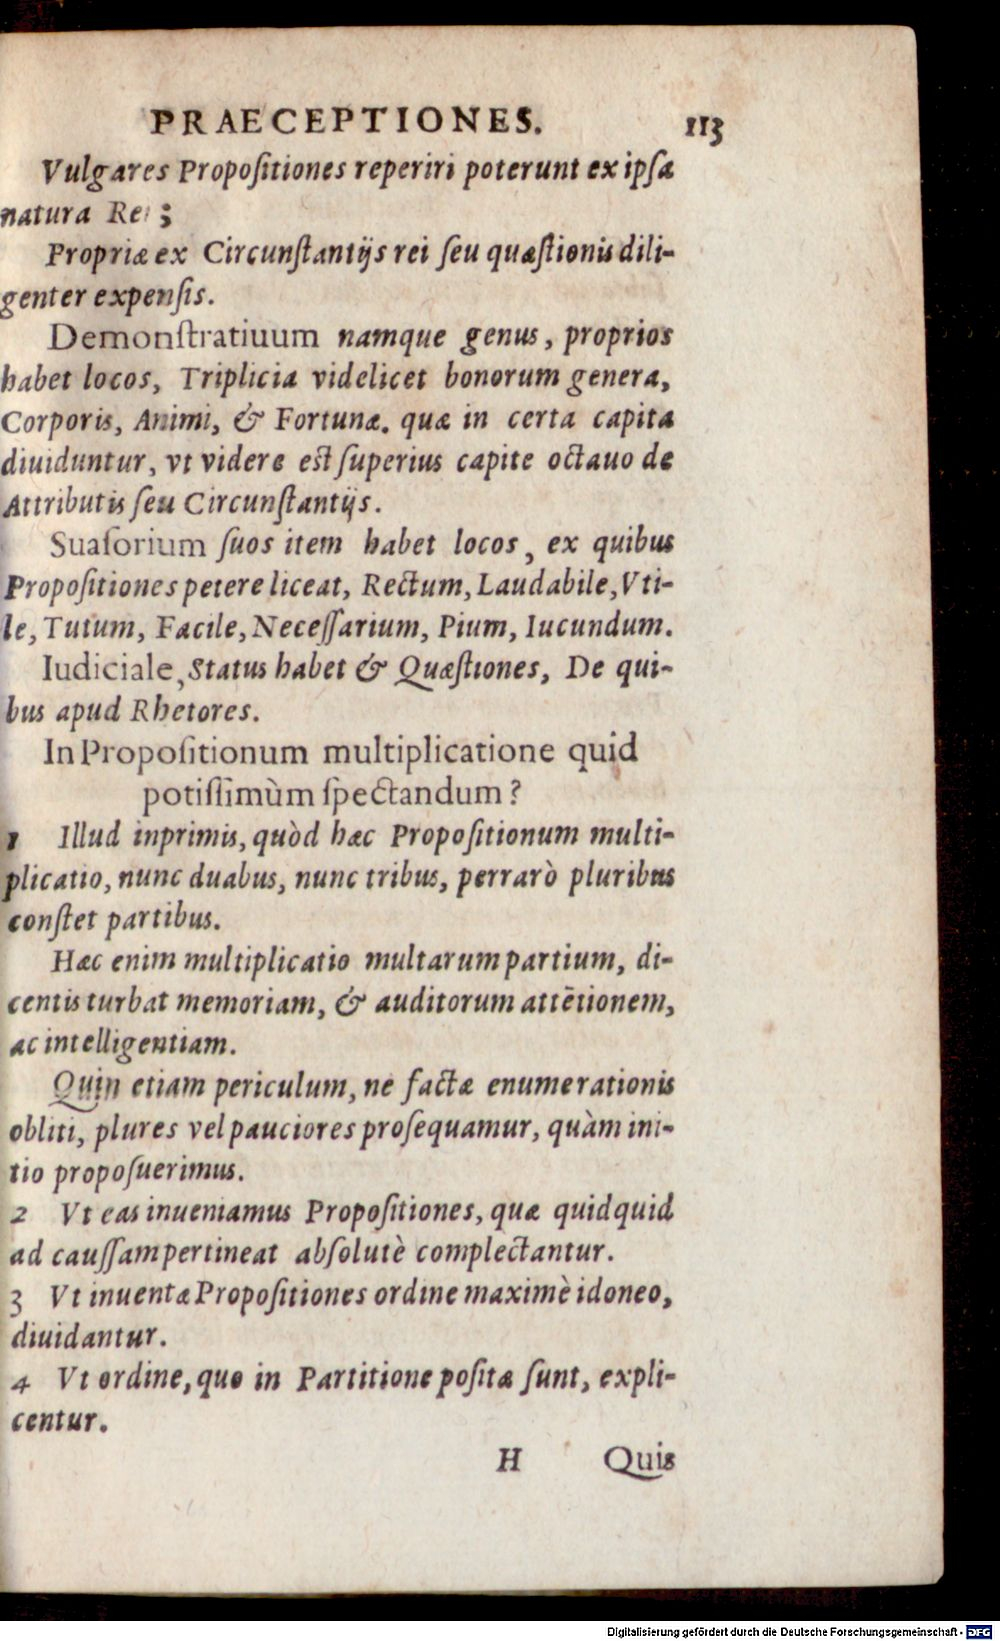 PRAECEPTIONES. 113
Vulgares Propoſitiones reperiri poterunt ex ipſa
natura Rei;
Propriæ ex Circunſtantijs rei ſeu quæſtionis dili-
genter expenſis.
Demonſtratiuum namque genus, proprios
habet locos, Triplicia videlicet bonorum genera,
Corporis, Animi, & Fortunæ. quæ in certa capita
diuiduntur, vt videre est ſuperius capite octauo de
Attributis ſeu Circunſtantijs.
Suaſorium ſuos item habet locos, ex quibus
Propoſitiones petere liceat, Rectum, Laudabile, Vti-
le, Tutum, Facile, Neceſſarium, Pium, Iucundum.
Iudiciale, Status habet & Quæſtiones, De qui-
bus apud Rhetores.
In Propoſitionum multiplicatione quid
potiſſimùm ſpectandum?
1 Illud inprimis, quòd hæc Propoſitionum multi-
plicatio, nunc duabus, nunc tribus, perrarò pluribus
conſtet partibus.
Hæc enim multiplicatio multarum partium, di-
centis turbat memoriam, & auditorum attētionem,
ac intelligentiam.
Quin etiam periculum, ne factæ enumerationis
obliti, plures vel pauciores proſequamur, quàm ini-
tio propoſuerimus.
2 Vt eas inueniamus Propoſitiones, quæ quidquid
ad cauſſam pertineat abſolutè complectantur.
3 Vt inuentæ Propoſitiones ordine maximè idoneo,
diuidantur.
4 Vt ordine, quo in Partitione poſitæ ſunt, expli-
centur.
H Quis
Digitalisierung gefördert durch die Deutsche Forschungsgemeinschaft - DFG